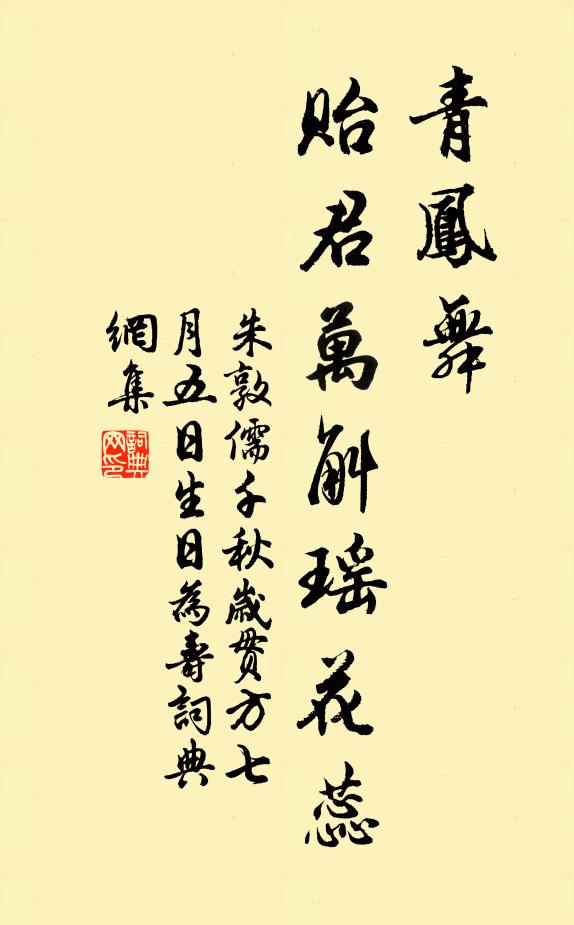 青鳳舞
貽君萬斛瑤花蕊
朱敦儒千秋歲贯方七
月五日生日為壽詞典
網集
詞典
网印